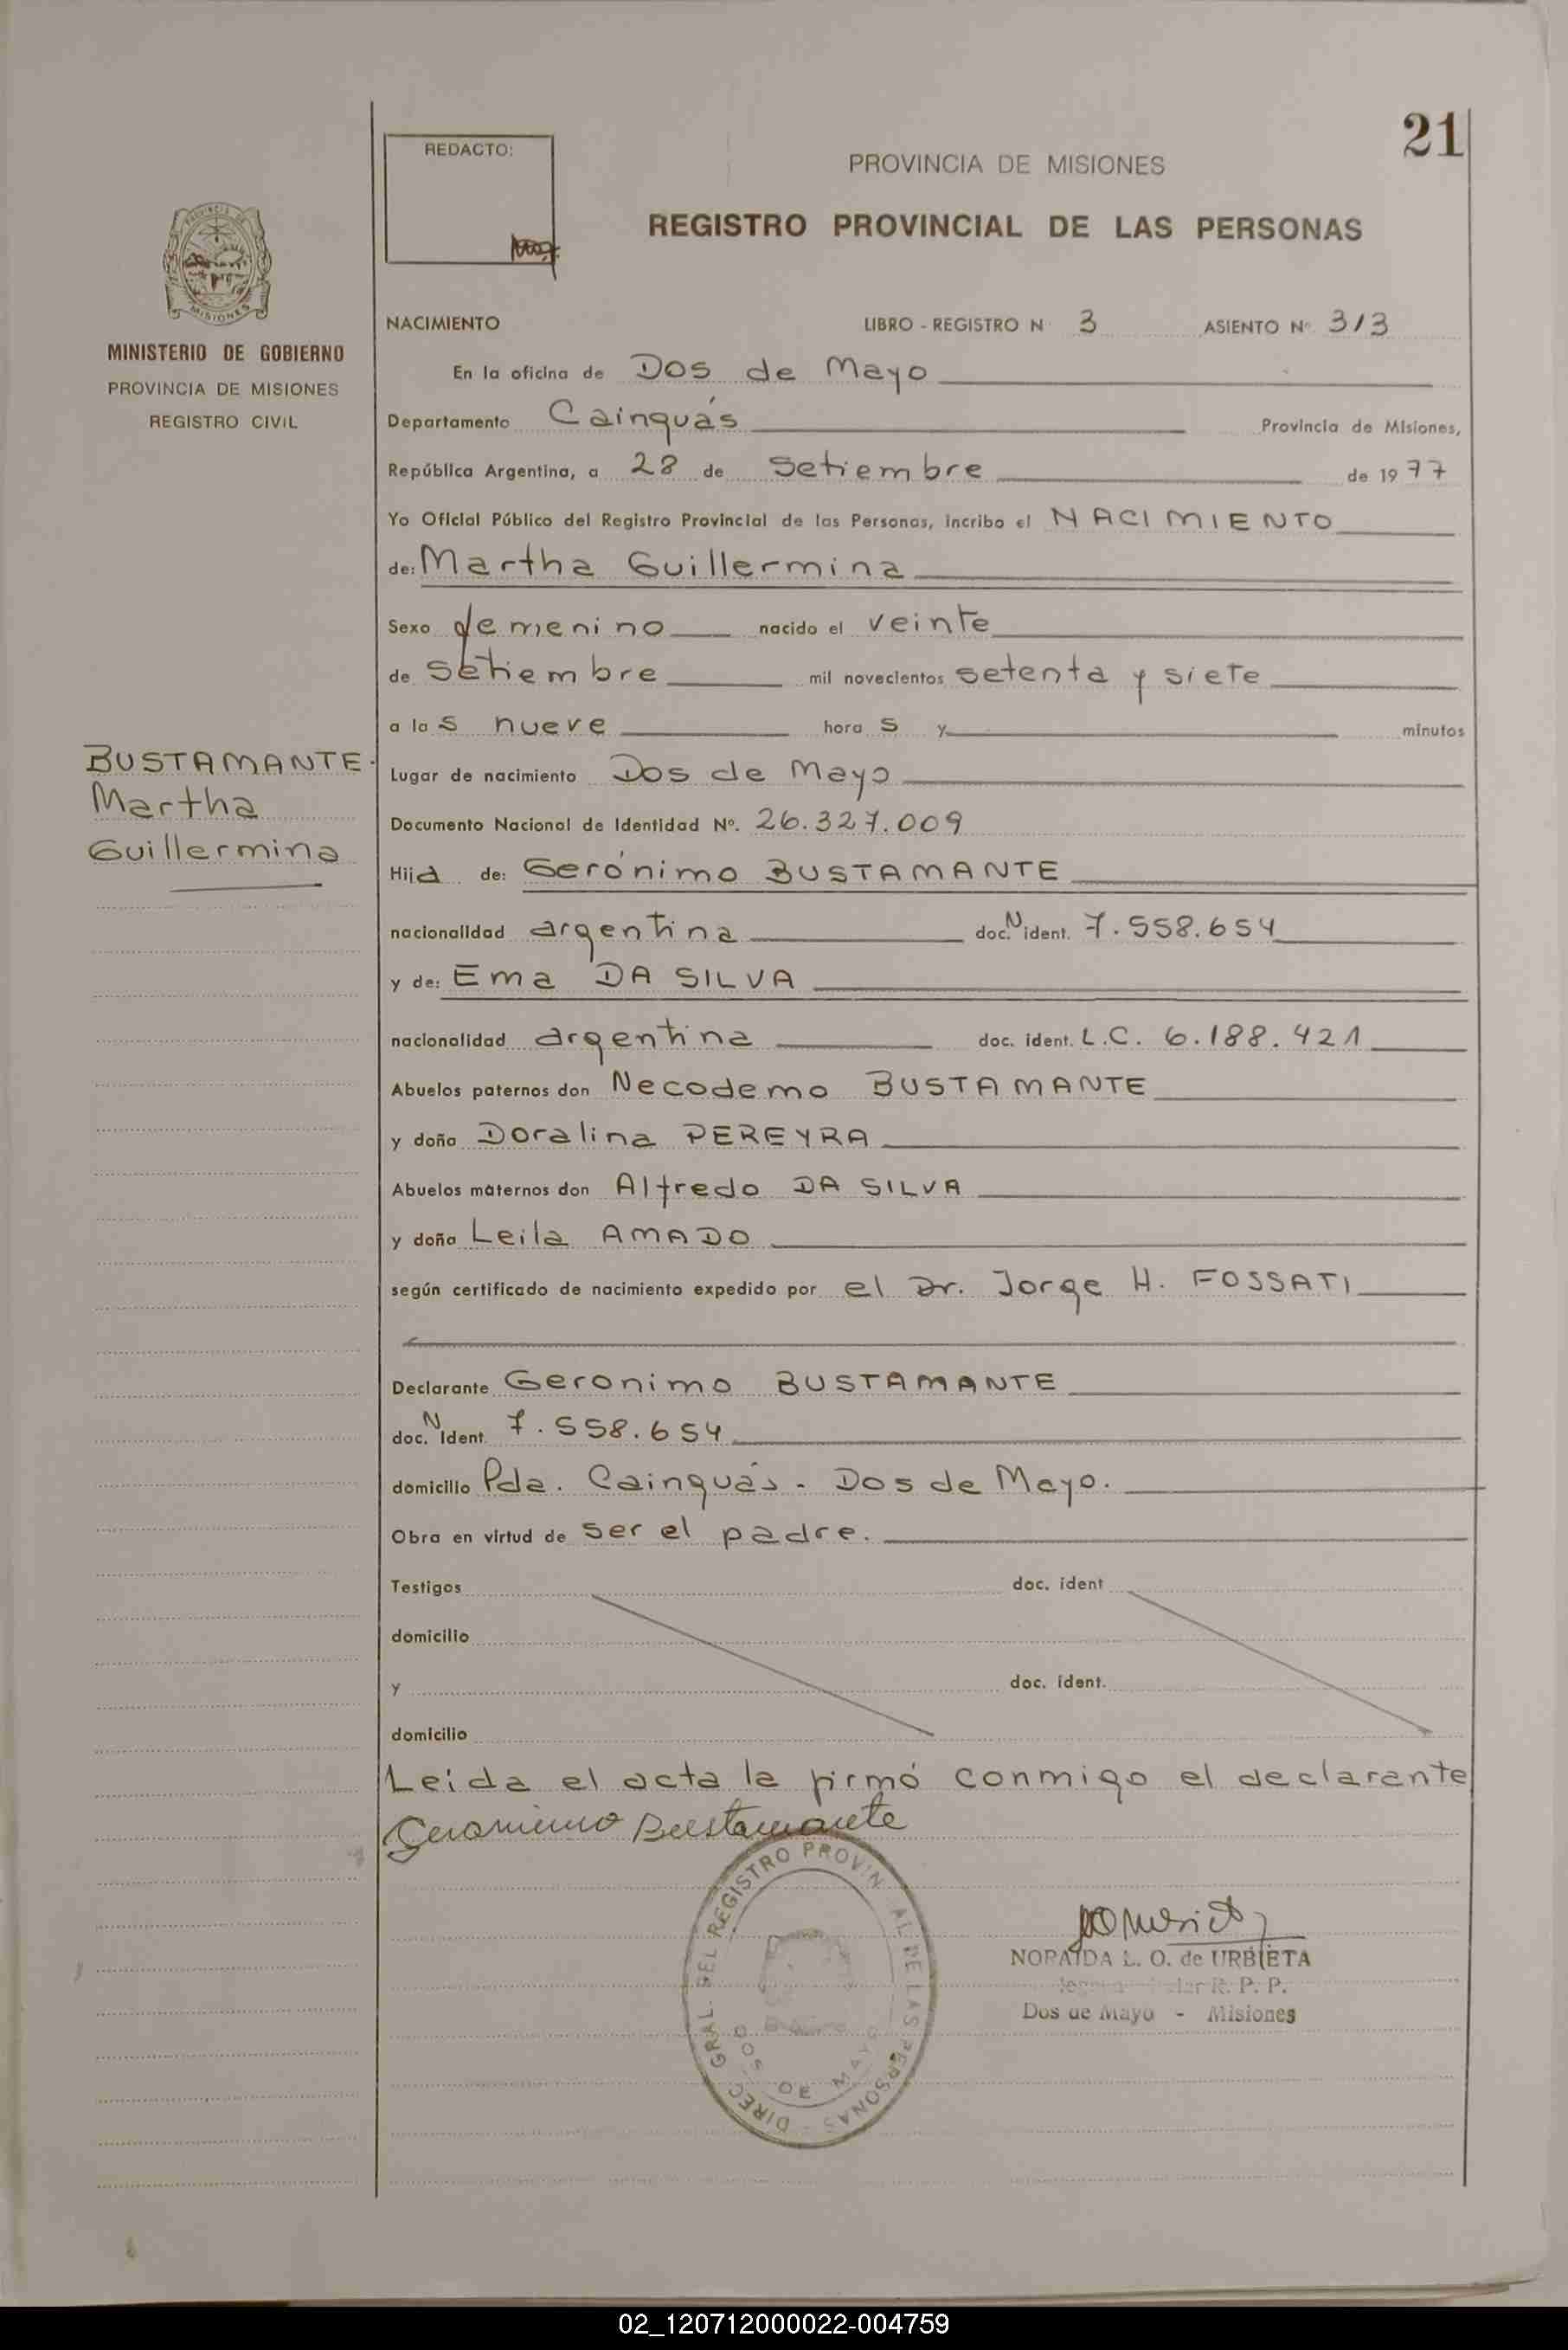 21
REDACTO:
PROVINCIA DE MISIONES
REGISTRO PROVINCIAL DE LAS PERSONAS
MINISTERIO DE GOBIERNO
PROVINCIA DE MISIONES
REGISTRO CIVIL
NACIMIENTO LIBRO - REGISTRO N 3 ASIENTO Nº 313
En la oficina de Dos de Mayo
Departamento Cainguás Provincia de Misiones,
República Argentina, a 28 de Setiembre de 1977
Yo Oficial Público del Registro Provincial de las Personas, incribo el NACIMIENTO
de: Martha Guillermina
Sexo femenino nacido el veinte
de Setiembre mil novecientos setenta y siete
a las nueve horas y minutos
BUSTAMANTE
Martha
Guillermina
Lugar de nacimiento Dos de Mayo
Documento Nacional de Identidad Nº. 26.327.009
Hija de: Gerónimo BUSTAMANTE
nacionalidad argentina doc. N ident. 7.558.654
y de: Ema DA SILVA
nacionalidad argentina doc. ident. L.C. 6.188.421
Abuelos paternos don Necodemo BUSTAMANTE
y doña Doralina PEREYRA
Abuelos maternos don Alfredo DA SILVA
y doña Leila AMADO
según certificado de nacimiento expedido por el Dr. Jorge H. FOSSATI
Declarante Geronimo BUSTAMANTE
doc. N Ident. 7.558.654
domicilio Pda. Cainguás - Dos de Mayo.
Obra en virtud de ser el padre.
Testigos doc. ident
domicilio
y doc. ident.
domicilio
Leida el acta la firmó conmigo el declarante
Geronimo Bustamante
DIREC GRAL. DEL REGISTRO PROVIN AL DE LAS PERSONAS
DOS DE MAYO
NORAIDA L. O. de URBIETA
R. P. P.
Dos de Mayo - Misiones
02_120712000022-004759